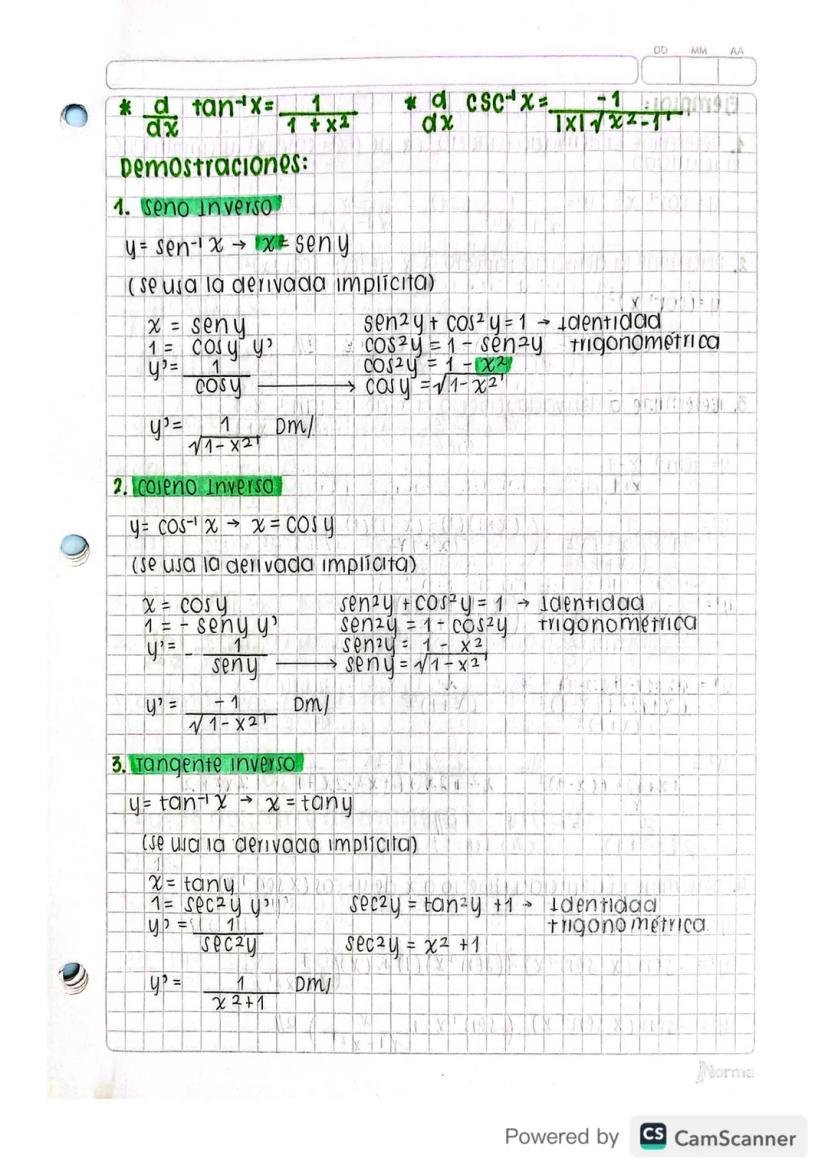 DD MM AA
* d/dx tan⁻¹x = 1/(1 + x²) * d/dx csc⁻¹x = -1/(|x|√(x²-1))
Demostraciones:
1. Seno Inverso
y = sen⁻¹ x → x = sen y
(se usa la derivada implícita)
x = sen y sen²y + cos²y = 1 → Identidad
1 = cos y y' cos²y = 1 - sen²y trigonométrica
y' = 1/cos y cos²y = 1 - x²
→ cos y = √(1-x²)
y' = 1/√(1-x²) Dm/
2. Coseno Inverso
y = cos⁻¹ x → x = cos y
(se usa la derivada implícita)
x = cos y sen²y + cos²y = 1 → Identidad
1 = - sen y y' sen²y = 1 - cos²y trigonométrica
y' = - 1/sen y sen²y = 1 - x²
→ sen y = √(1-x²)
y' = -1/√(1-x²) Dm/
3. Tangente inverso
y = tan⁻¹ x → x = tan y
(se usa la derivada implícita)
x = tan y
1 = sec²y y' sec²y = tan²y + 1 → Identidad
y' = 1/sec²y trigonométrica
sec²y = x² + 1
y' = 1/(x²+1) Dm/
Norma
Powered by CS CamScanner